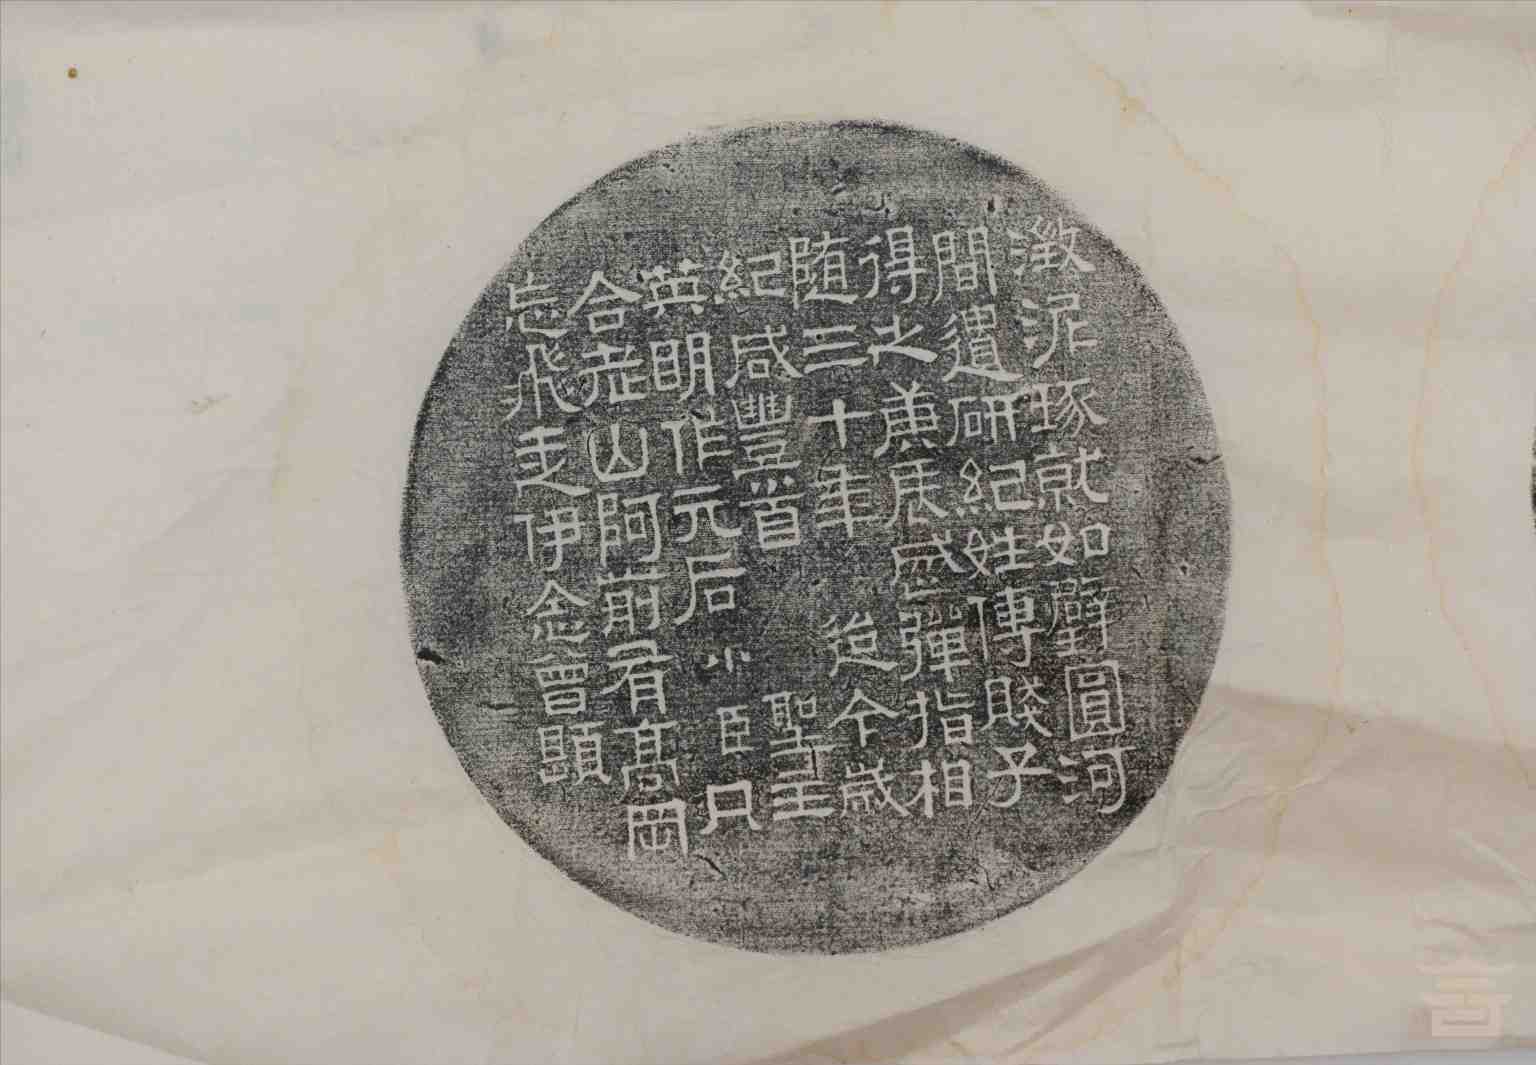 澂泥琢就如璧圓河
間遺研紀姓傳賤子
得之庚辰成彈指相
随三十年追今歲
紀咸豐首聖主
英明作元后小臣只
合老山阿前有高岡
忘飛走伊念曾顕